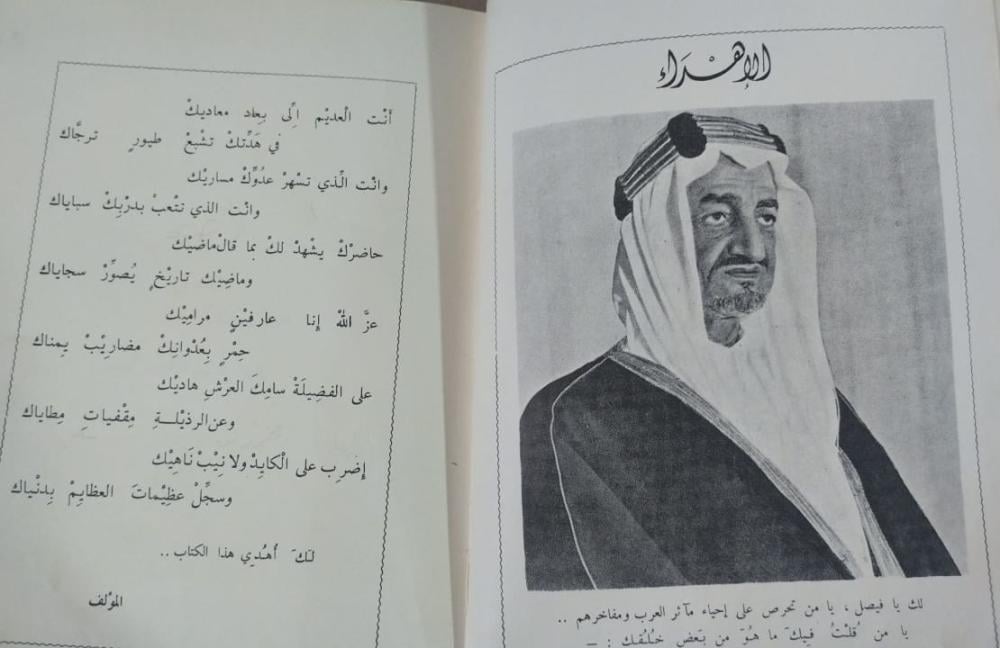 الإهداء
لك يا فيصل ، يا من تحرص على إحياء مآثر العرب ومفاخرهم ..
يا من قلْتُ فيكَ ما هُوَ من بَعض خُلُقك : —
أنْت الْعديْم الِّى بعاد معاديكْ
في هَدِّتكْ تشْبعْ طيورٍ ترجَّاك
وانْت الَّذي تسْهرْ عدُوِّكْ مساريْك
وانْت الذي تتْعبْ بدرْبِكْ سباياك
حاضرْكْ يشْهدْ لكْ بما قالْ ماضيْك
وماضِيْك تاريْخٍ يُصوِّرْ سجاياك
عزَّ اللهْ إنا عارفيْنٍ مراميْك
حِمْرٍ بِعُدْوانِكْ مضاريْبْ يمناك
على الفضِيلَةْ سامِكَ العرْشِ هاديْك
وعن الرذيْلـــةِ مِقْفياتٍ مِطاياك
إضربِ على الْكايدْ ولا نيْبْ نَاهيْك
وسجِّلْ عظِيْماتَ العظايِمْ بِدنْياك
لَكَ أُهْدِي هذا الكتاب ..
المؤلف